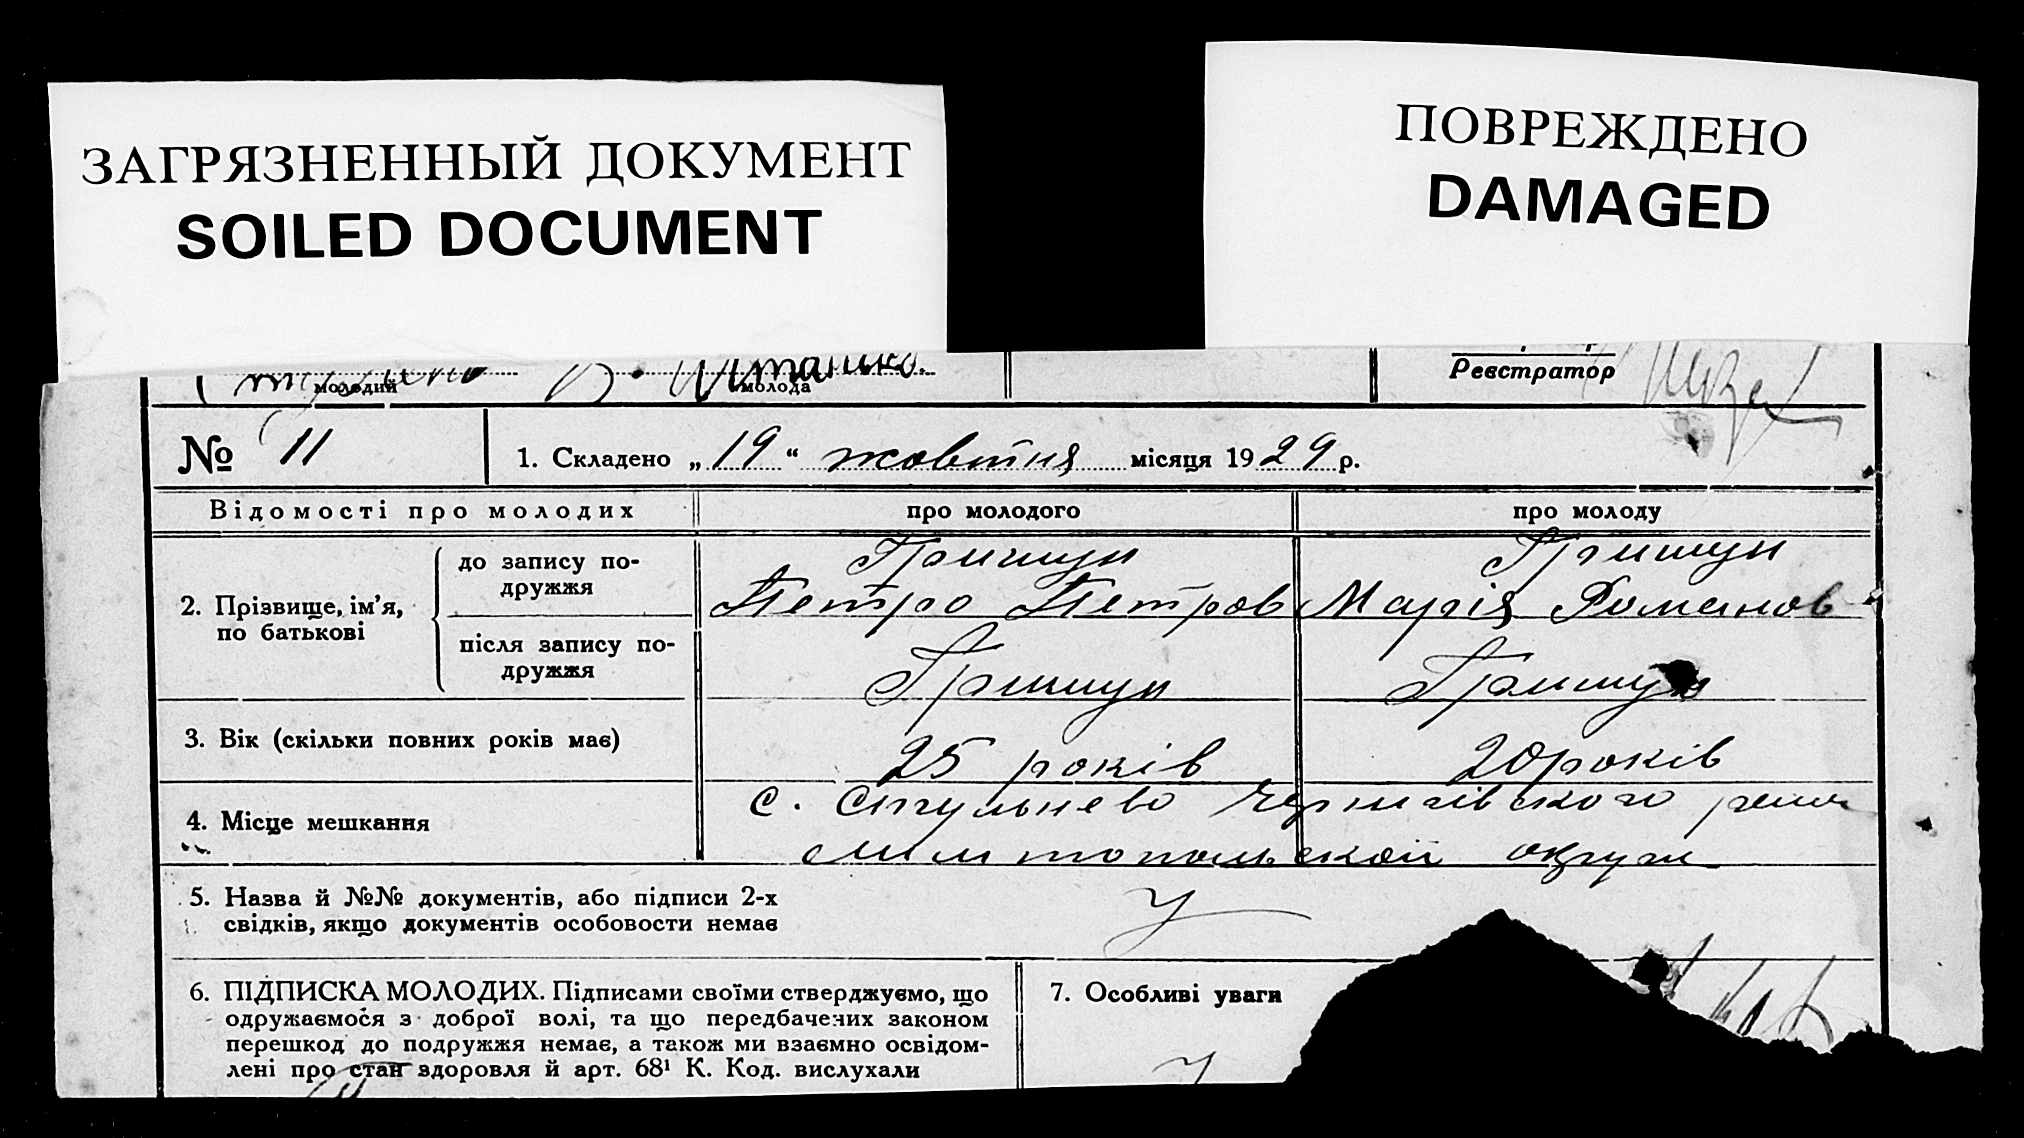 ЗАГРЯЗНЕННЫЙ ДОКУМЕНТ
SOILED DOCUMENT
ПОВРЕЖДЕНО
DAMAGED
молодий молода Реєстратор
№ 11 1. Складено „19“ жовтня місяця 1929 р.
Відомості про молодих про молодого про молоду
2. Прізвище, ім'я, по батькові
до запису подружжя
Гришун Гришун
Петро Петров Марія Романов
після запису подружжя
Гришун Гришун
3. Вік (скільки повних років має) 25 років 20 років
4. Місце мешкання с. Стульнево Чернигівского
округи
5. Назва й №№ документів, або підписи 2-х
свідків, якщо документів особовости немає
6. ПІДПИСКА МОЛОДИХ. Підписами своїми стверджуємо, що
одружаємося з доброї волі, та що передбачених законом
перешкод до подружжя немає, а також ми взаємно освідом-
лені про стан здоровля й арт. 68¹ К. Код. вислухали
7. Особливі уваги